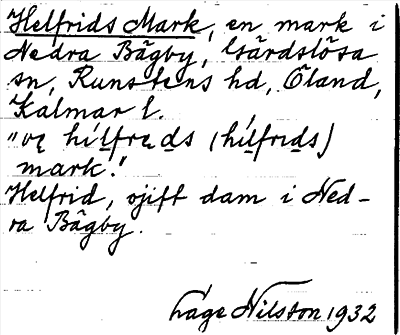 Helfrids Mark, en mark i
Nedra Bägby, Gärdslösa
sn, Runstens hd, Öland,
Kalmar l.
mark."
Helfrid, ogift dam i Ned-
ra Bägby.
Låge Nilston 1932